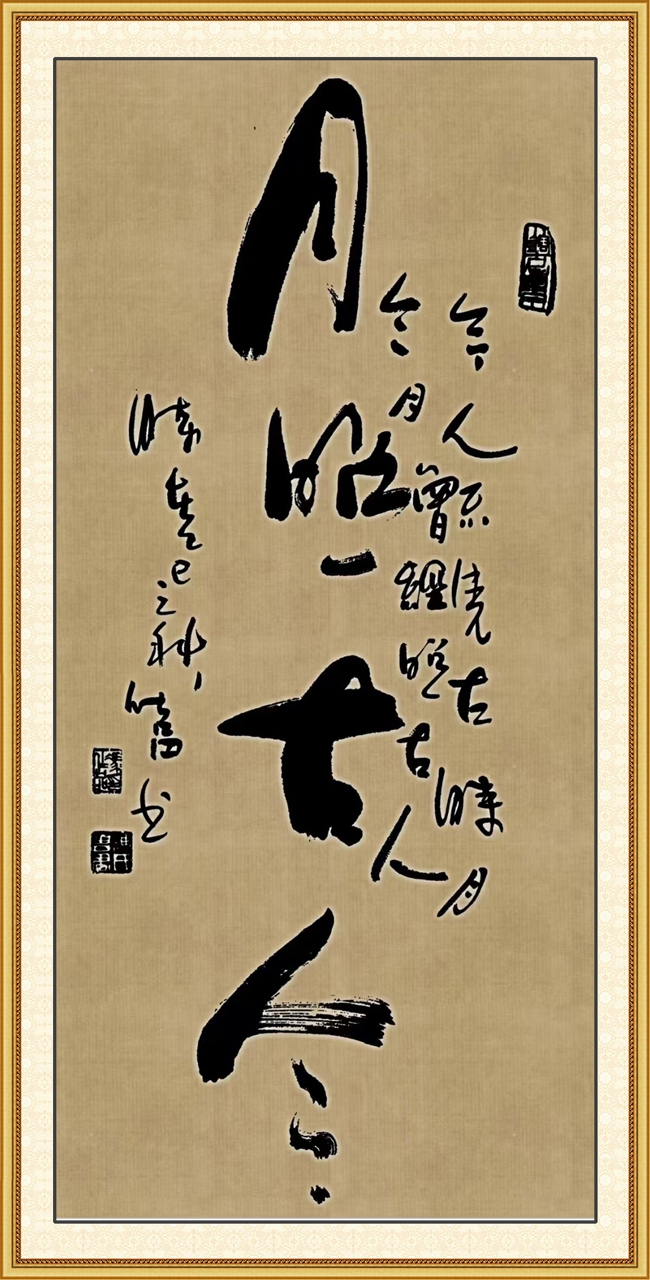 今人不見古時月
今月曾經照古人
月照古今
時在乙巳之秋
书